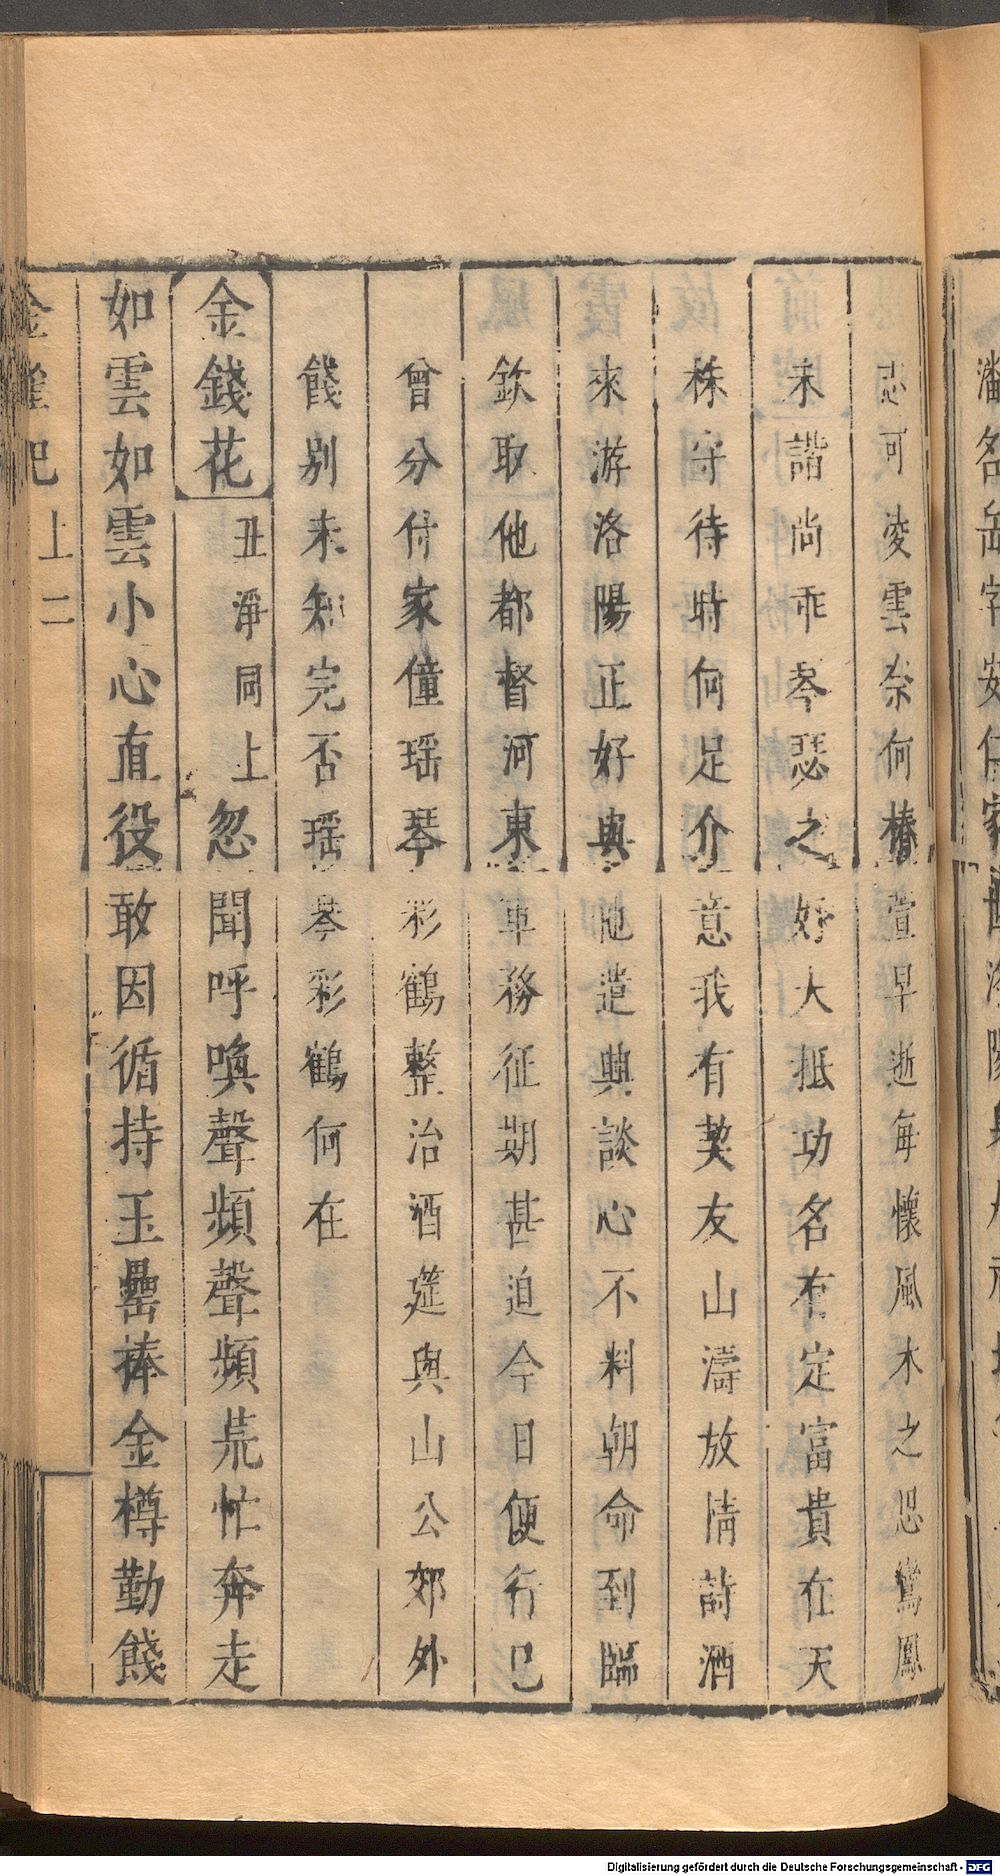 潘名岳字安仁家世
志可凌雲奈何椿萱早逝每懷風木之思鸞鳳
未諧尚乖琴瑟之好大抵功名有定富貴在天
株守待時何足介意我有契友山濤放情詩酒
來游洛陽正好與他遣興談心不料朝命到臨
欽取他都督河東軍務征期甚迫今日便行已
曾分付家僮瑶琴彩鶴整治酒筵與山公郊外
餞別未知完否瑶琴彩鶴何在
金錢花 丑淨同上 忽聞呼喚聲頻聲頻荒忙奔走
如雲如雲小心直役敢因循持玉罍捧金樽勤餞
金雀記 上 二
Digitalisierung gefördert durch die Deutsche Forschungsgemeinschaft - DFG